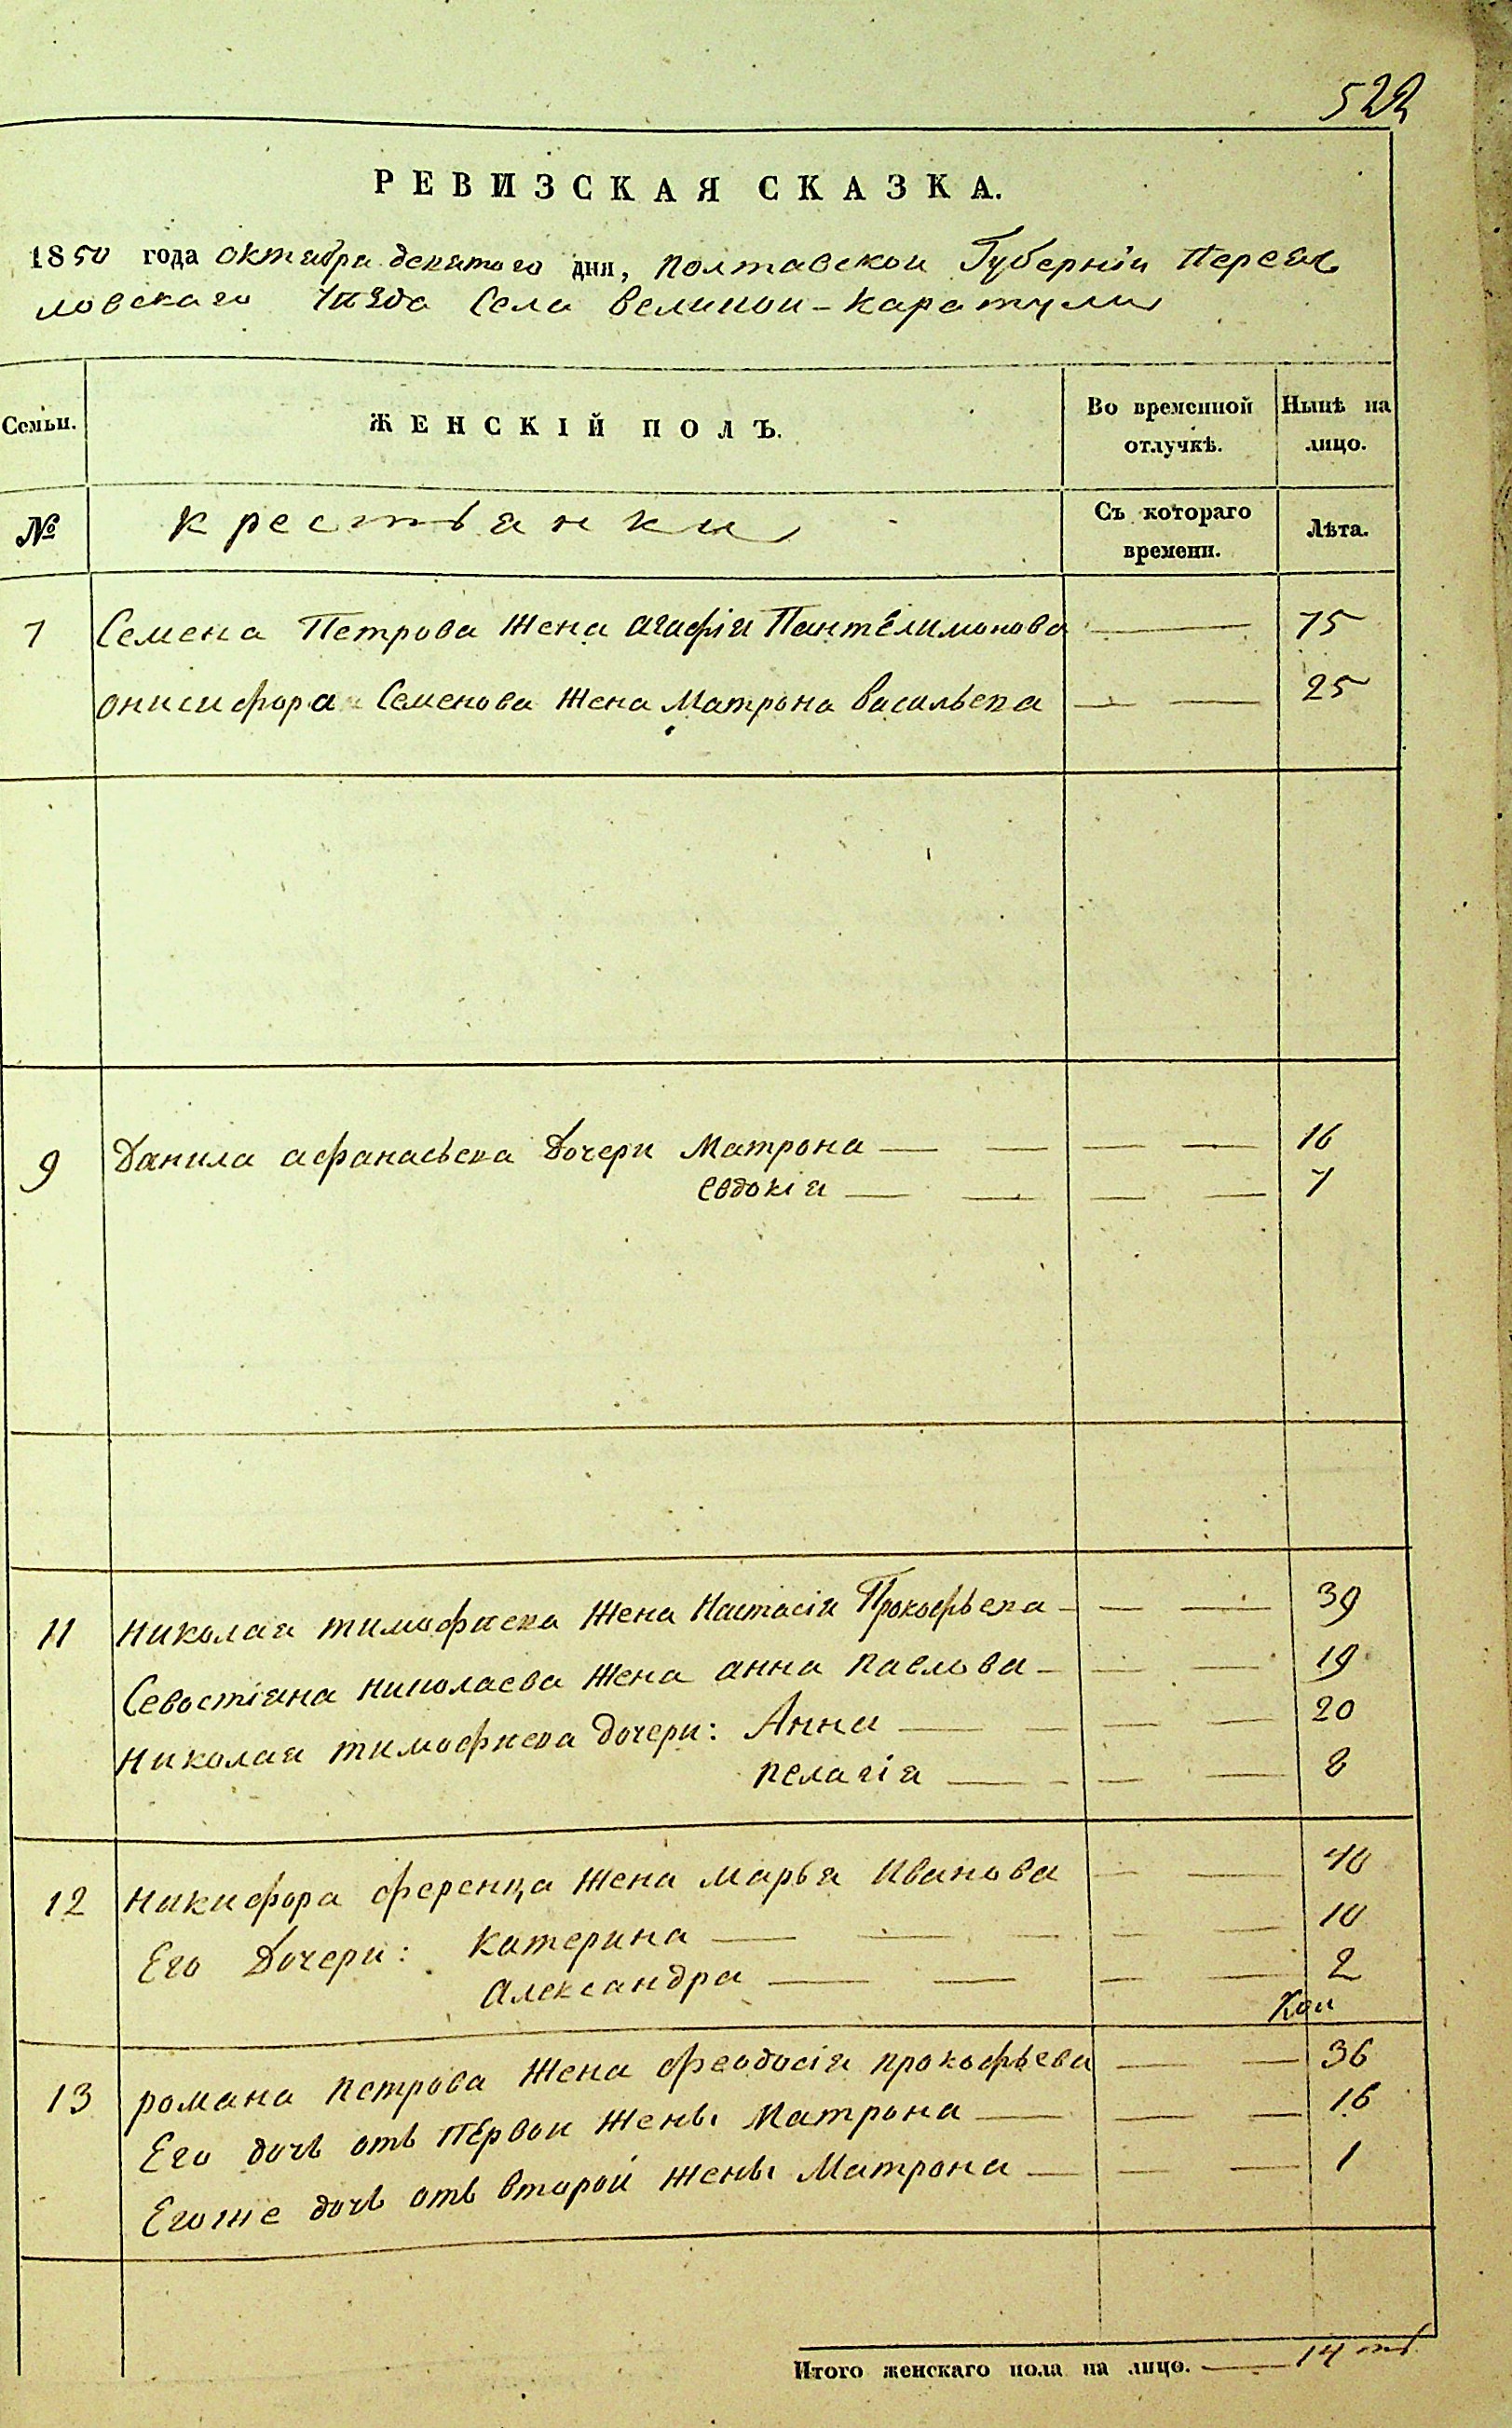 522
РЕВИЗСКАЯ СКАЗКА.
1850 года октября девятого дня, Полтавской Губерніи Переяс
ловскаго Уѣзда Села Великои-Каратули
Семьи.
ЖЕНСКІЙ ПОЛЪ.
Во временной отлучкѣ.
Нынѣ на лицо.
№
крестьянки
Съ котораго времени.
Лѣта.
7 Семена Петрова Жена Агафія Пантелимонова — 75
Онисифора Семенова Жена Матрона Васильева — — 25
9 Данила Афанасьева Дочери Матрона — — — — 16
Евдокія — — — — 7
11 Николая Тимофиева Жена Настасія Прокофьева — — — 39
Севостіяна Николаева Жена Анна Павлова — — — 19
Николая Тимофиева дочери: Анна — — — — 20
Пелагія — — — — 8
12 Никифора Ференца Жена Марья Иванова — — 40
Его Дочери: Катерина — — — — — 10
Александра — — — — 2
13 Романа Петрова Жена Феодосія Прокофьева — — 36
Его дочь отъ Первои Жены Матрона — — — 16
Егоже дочь отъ Второй жены Матрона — — — 1
Итого женскаго пола на лицо. — 14